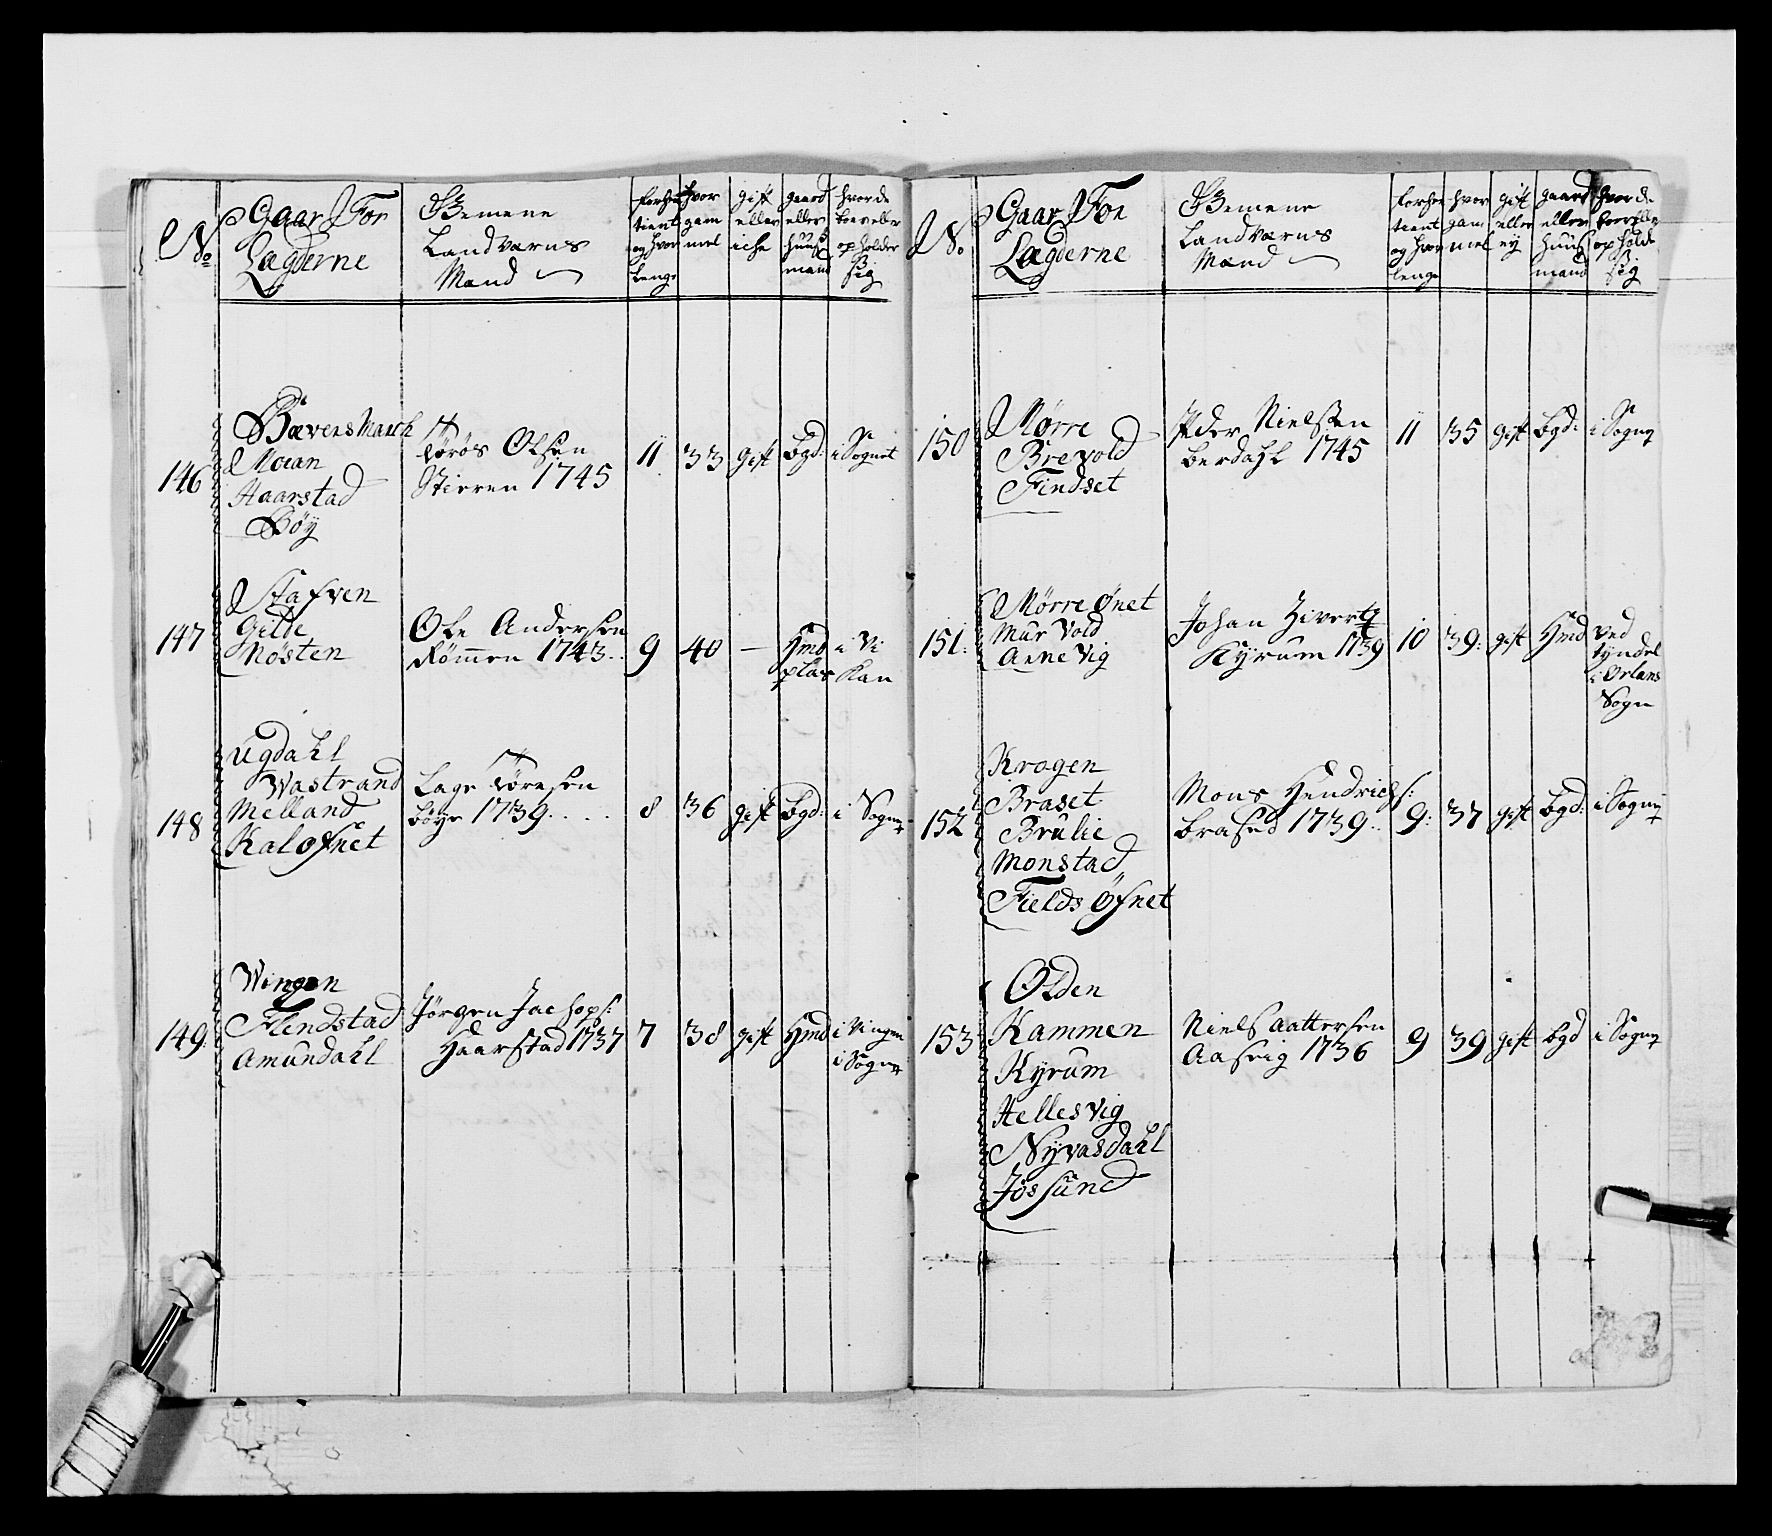 No
Gaar For
Lægderne
Gemene
Landværns
Mænd
forhen
tient
og hvor
lenge
hvor
gam
mel
gift
eller
iche
gaard
eller
huus
mand
hvor de
boer eller
opholder
sig
146
Bævens March
Moian
Haarstad
Böÿ
Törös Olsen
Stirren 1745
11
33
gift
bgd:
i Sognet
147
Stafven
Gilde
Nösten
Ole Andersen
Römmen 1743..
9
40
—
Hmd
plas
i Vi
Kan
148
Ugdahl
Wastrand
Melland
Kalofnet
Lage Töresen
böye 1739.....
8
36
gift
bgd:
i Sogn
149.
Wingen
Flendstad
Amundahl
Jörgen Jachops:
Haarstad 1737
7
38
gift
Hmd
i Vingen
i Sogn
No
Gaar For
Lægderne
Gemene
Landværns
Mænd
forhen
tient
og hvor
lenge
hvor
gam
mel
gift
eller
ey
gaard
eller
huus
mand
hvor de
boer eller
ophold
sig
150
Mørre
Brevold
Findset
Peder Nielsen
berdahl 1745
11
35
gift
bgd:
i Sogn
151:
Mørre Ønet
Mur Vold
Anne Vig
Johan Zivert
Kyrum 1739
10
39:
gift
Hmd
ved
tyndel
i Ørlans
Sogn
152
Krogen
Braset
Brülie
Monstad
Fields Öfnet
Mons Hendrichs:
brased 1739..
9:
37
gift
bgd:
i Sogn
153
Olden
Kammen
Kyrum
Hellesvig
Nÿvasdahl
Jössund
Niels Aattersen
Aasvig 1736
9
39
gift
bgd
i Sogn